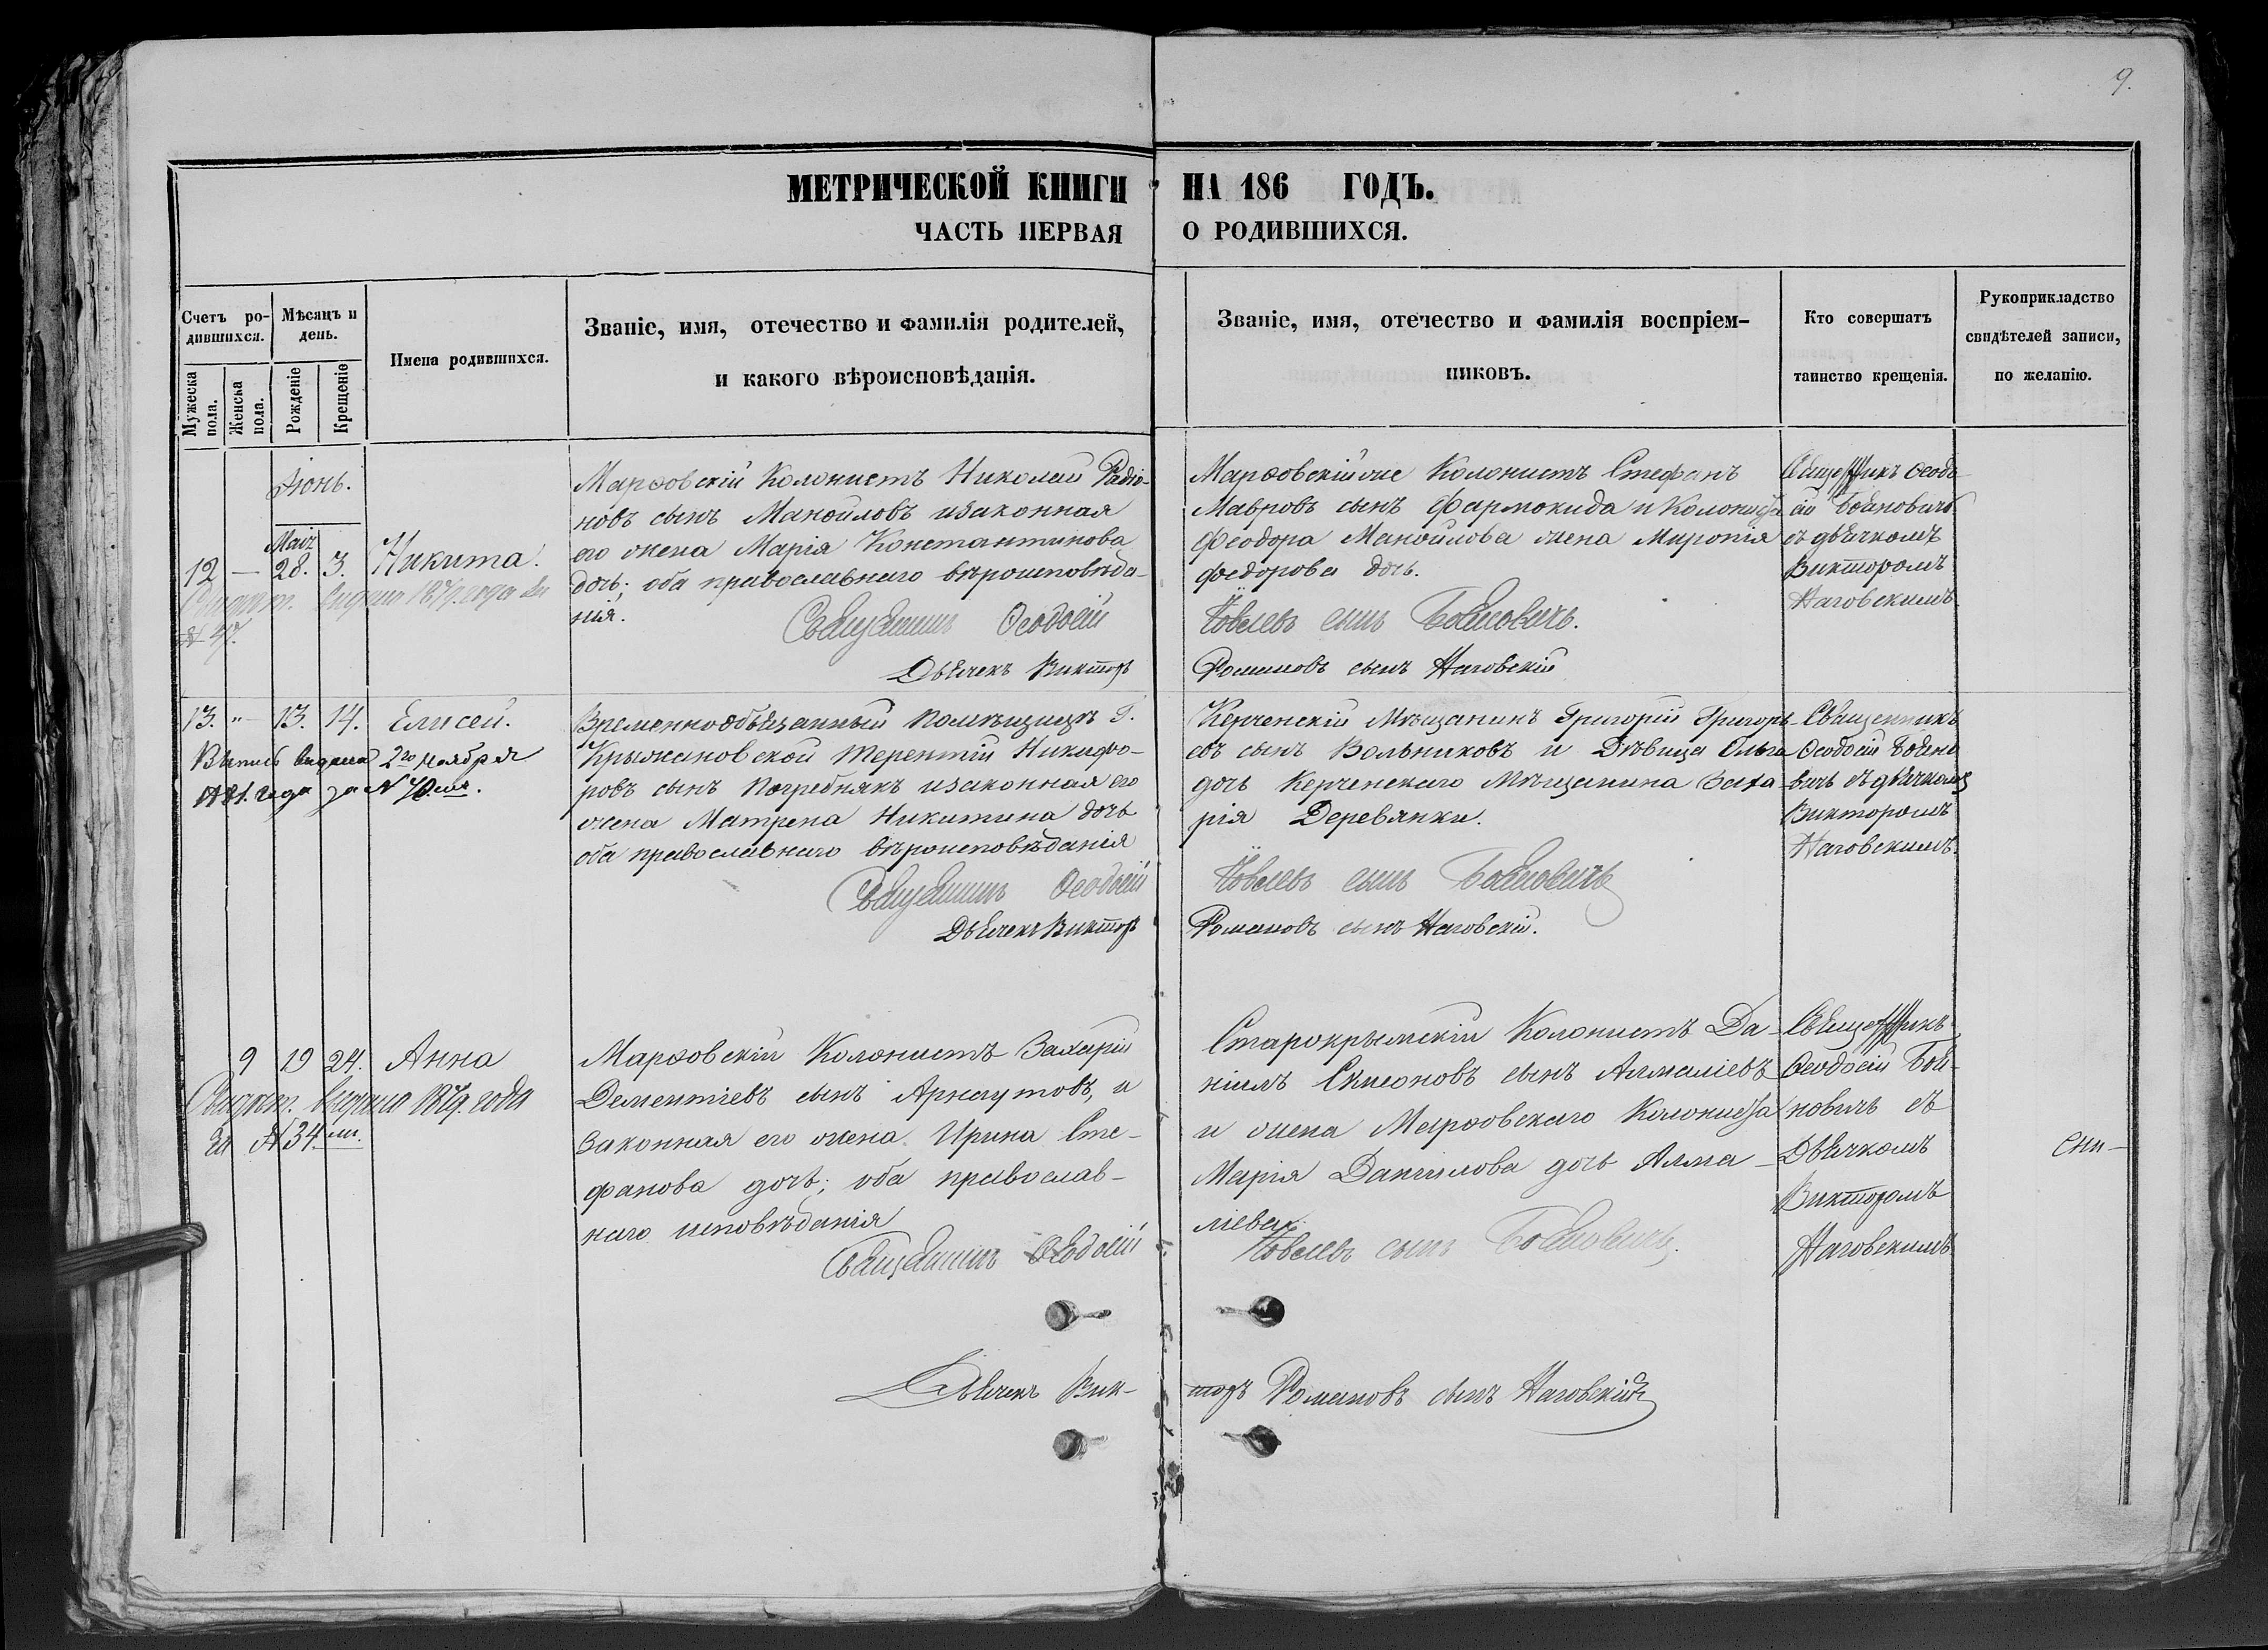 9.
МЕТРИЧЕСКОЙ КНИГИ НА 186 ГОДЪ.
ЧАСТЬ ПЕРВАЯ О РОДИВШИХСЯ.
Счетъ ро-
дившихся.
Мужеска
пола.
Женска
пола.
Мѣсяцъ и
день.
Рожденіе
Крещеніе
Имена родившихся.
Званіе, имя, отечество и фамилія родителей,
и какого вѣроисповѣданія.
Званіе, имя, отечество и фамилія воспріем-
никовъ.
Кто совершатъ
таинство крещенія.
Рукоприкладство
свидѣтелей записи,
по желанію.
Іюнь.
Маія
12 — 28. 3. Никита.
Марѳовскій Колонистъ Николай Радіо-
новъ сынъ Манойловъ изаконная
его жена Марія Константинова
дочь; оба православнаго вѣроисповѣда-
нія.
Священникъ Ѳеодосій
Дьячекъ Викторъ
Марѳовскійже Колонистъ Стефанъ
Мавровъ сынъ Фармокида и Колониста
Феодора Манойлова жена Миропія
федорова дочь.
Іовлевъ сынъ Бойновичъ.
Романовъ сынъ Наговскій
Священникъ Ѳеодо-
сій Бойновичъ
съ дьячкомъ
Викторомъ
Наговскимъ
13. " 13. 14. Елисей.
Выпись выдана 2го Ноября
1881. года за N 70.мъ.
Временнообязанный помѣщицы Г.
Крыжановской Терентій Никифо-
ровъ сынъ Погребнякъ изаконная его
жена Матрена Никитина дочь
оба православнаго вѣроисповѣданія
Священникъ Ѳеодосій
Дьячекъ Викторъ
Керченскій Мѣщанинъ Григорій Григорь-
евъ сынъ Вольниковъ и Дѣвица Ольга
дочь Керченскаго Мѣщанина Заха-
рія Деревянки.
Іовлевъ сынъ Бойновичъ
Романовъ сынъ Наговскій.
Священникъ
Ѳеодосій Бойно
вичъ съ дьячкомъ
Викторомъ
Наговскимъ.
9 19 24. Анна
Свидѣт. выдано 1879. года
за N 34мъ.
Марѳовскій Колонистъ Захарій
Дементіевъ сынъ Арнаутовъ, и
законная его жена Ирина Сте-
фанова дочь; оба православ-
наго исповѣданія
Священникъ Ѳеодосій
Дьячекъ Вик-
Старокрымскій Колонистъ Да-
ніилъ Симоновъ сынъ Алмаліевъ
и жена Марѳовскаго Колониста
Марія Данилова дочь Алма-
ліева.
Іовлевъ сынъ Бойновичъ.
торъ Романовъ сынъ Наговскій
Священникъ
Ѳеодосій Бой-
новичъ съ
Дьячкомъ
Викторомъ
Наговскимъ